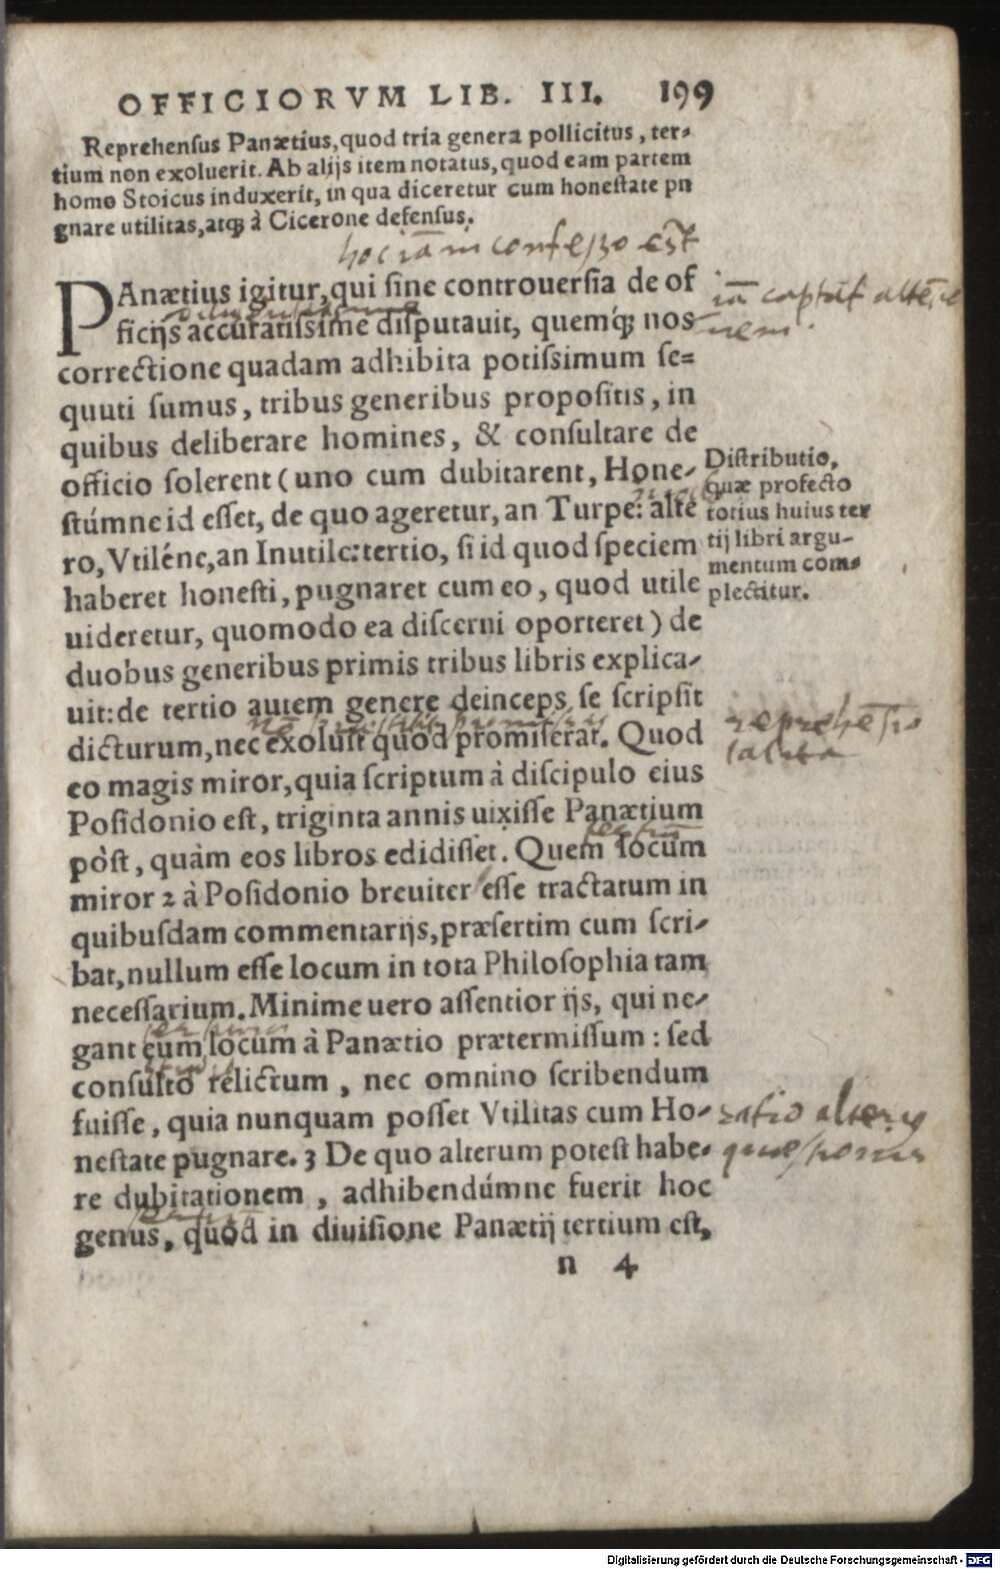 OFFICIORVM LIB. III. 199
Reprehensus Panætius, quod tria genera pollicitus, ter-
tium non exoluerit. Ab alijs item notatus, quod eam partem
homo Stoicus induxerit, in qua diceretur cum honestate pu
gnare utilitas, atq; à Cicerone defensus.
PAnætius igitur, qui sine controuersia de of
ficijs accuratissime disputauit, quemq́; nos
correctione quadam adhibita potissimum se=
quuti sumus, tribus generibus propositis, in
quibus deliberare homines, & consultare de
officio solerent (uno cum dubitarent, Hone-
stúmne id esset, de quo ageretur, an Turpe: alte
ro, Vtiléne, an Inutile: tertio, si id quod speciem
haberet honesti, pugnaret cum eo, quod utile
uideretur, quomodo ea discerni oporteret) de
duobus generibus primis tribus libris explica-
uit: de tertio autem genere deinceps se scripsit
dicturum, nec exoluit quod promiserat. Quod
eo magis miror, quia scriptum à discipulo eius
Posidonio est, triginta annis uixisse Panætium
pòst, quàm eos libros edidisset. Quem locum
miror 2 à Posidonio breuiter esse tractatum in
quibusdam commentarijs, præsertim cum scri-
bat, nullum esse locum in tota Philosophia tam
necessarium. Minime uero assentior ijs, qui ne-
gant eum locum à Panætio prætermissum: sed
consulto relictum, nec omnino scribendum
fuisse, quia nunquam posset Vtilitas cum Ho-
nestate pugnare. 3 De quo alterum potest habe-
re dubitationem, adhibendúmne fuerit hoc
genus, quod in diuisione Panætij tertium est,
n 4
Distributio,
quæ profecto
totius huius ter
tij libri argu-
mentum com-
plectitur.
Digitalisierung gefördert durch die Deutsche Forschungsgemeinschaft - DFG